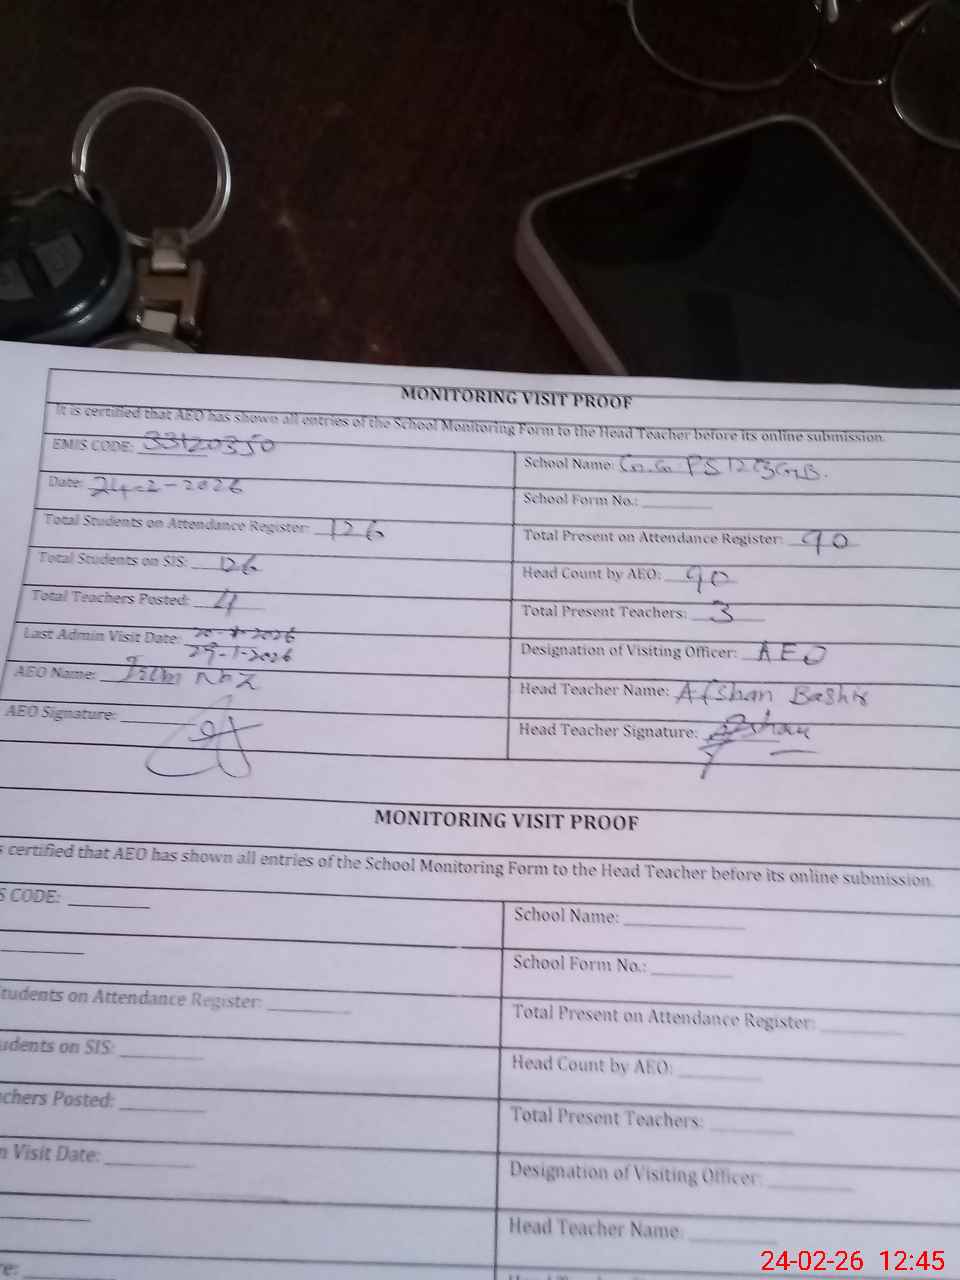 MONITORING VISIT PROOF
It is certified that AEO has shown all entries of the School Monitoring Form to the Head Teacher before its online submission.
EMIS CODE: 33120350
School Name: G.G.PS 123GB.
Date: 24-2-2026
School Form No.:
Total Students on Attendance Register: 126
Total Present on Attendance Register: 90
Total Students on SIS: 126
Head Count by AEO: 90
Total Teachers Posted: 4
Total Present Teachers: 3
Last Admin Visit Date: 29-1-2026
Designation of Visiting Officer: AEO
AEO Name:
Head Teacher Name: Afshan Bashir
AEO Signature:
Head Teacher Signature: Afshan
MONITORING VISIT PROOF
certified that AEO has shown all entries of the School Monitoring Form to the Head Teacher before its online submission.
S CODE:
School Name:
School Form No.:
tudents on Attendance Register:
Total Present on Attendance Register:
udents on SIS:
Head Count by AEO:
chers Posted:
Total Present Teachers:
n Visit Date:
Designation of Visiting Officer:
Head Teacher Name:
re:
24-02-26 12:45